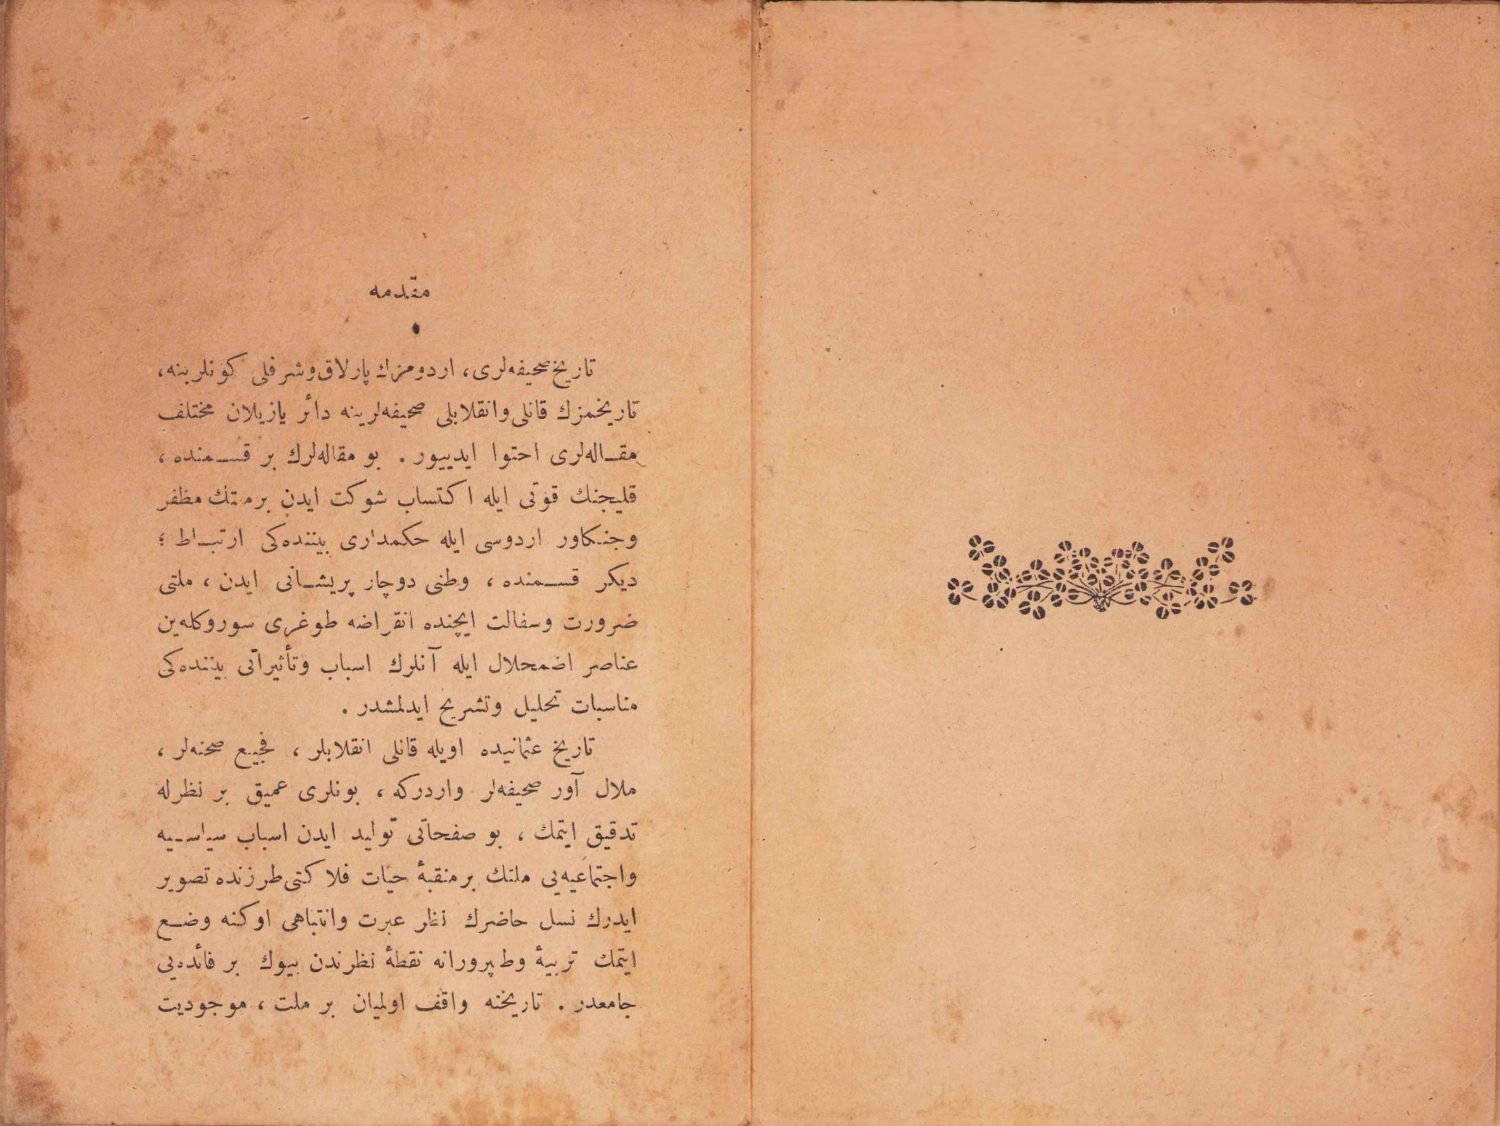 مقدمه
تاریخ صحیفه‌لری، اردومزك پارلاق وشرفلی كونلرینه،
تاریخمزك قانلی وانقلابلی صحیفه‌لرینه دائر یازیلان مختلف
مقـاله‌لری احتوا ایدییور . بو مقاله‌لرك بر قسـمنده ،
قلیجنك قوتی ایله اكتساب شوكت ایدن بر متك مظفر
وجنـكاور اردوسی ایله حكمداری بیننده‌كی ارتبـاط ؛
دیكر قسـمنده ، وطنی دوچار پریشـانی ایدن ، ملتی
ضرورت وسفالت ایچنده انقراضه طوغری سوروكله‌ین
عناصر اضمحلال ایله آنلرك اسباب وتأثیراتی بیننده‌كی
مناسبات تحلیل وتشریح ایدلمشدر .
تاریخ عثمانیده اویله قانلی انقلابلر ، فجیـع صحنه‌لر ،
ملال آور صحیفه‌لر واردركه ، بونلری عمیق بر نظرله
تدقیق ایتمك ، بو صفحاتی تولید ایدن اسباب سیاسـیه
واجتماعیه‌یی ملتك بر منقبۀ حیات فلاكتی طرزنده تصویر
ایدرك نسل حاضرك نظر عبرت وانتباهی اوكنه وضـع
ایتمك تربیۀ وطنپرورانه نقطۀ نظرندن بیوك بر فائده‌یی
جامعدر . تاریخنه واقف اولمیان بر ملت ، موجودیت